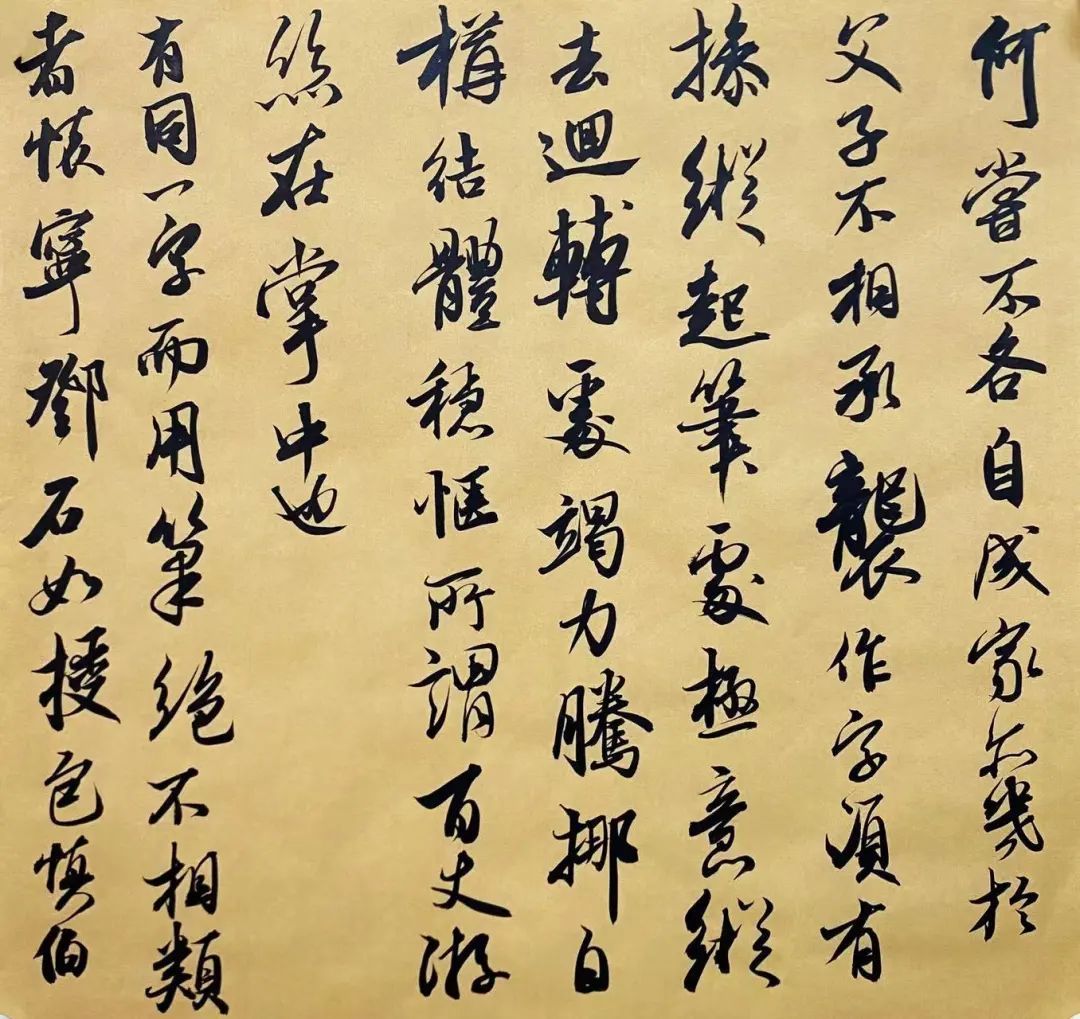 何嘗不各自成家亦幾於
父子不相承襲作字須有
操縱起筆處極意縱
去迴轉處竭力騰挪自
構結體穩愜所謂百丈游
絲在掌中也
有同一字而用筆絕不相類
者懷寧鄧石如授包慎伯